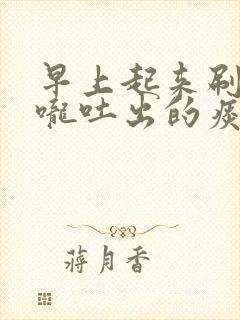 早上起来刷
咙吐出的痰
蒋月香